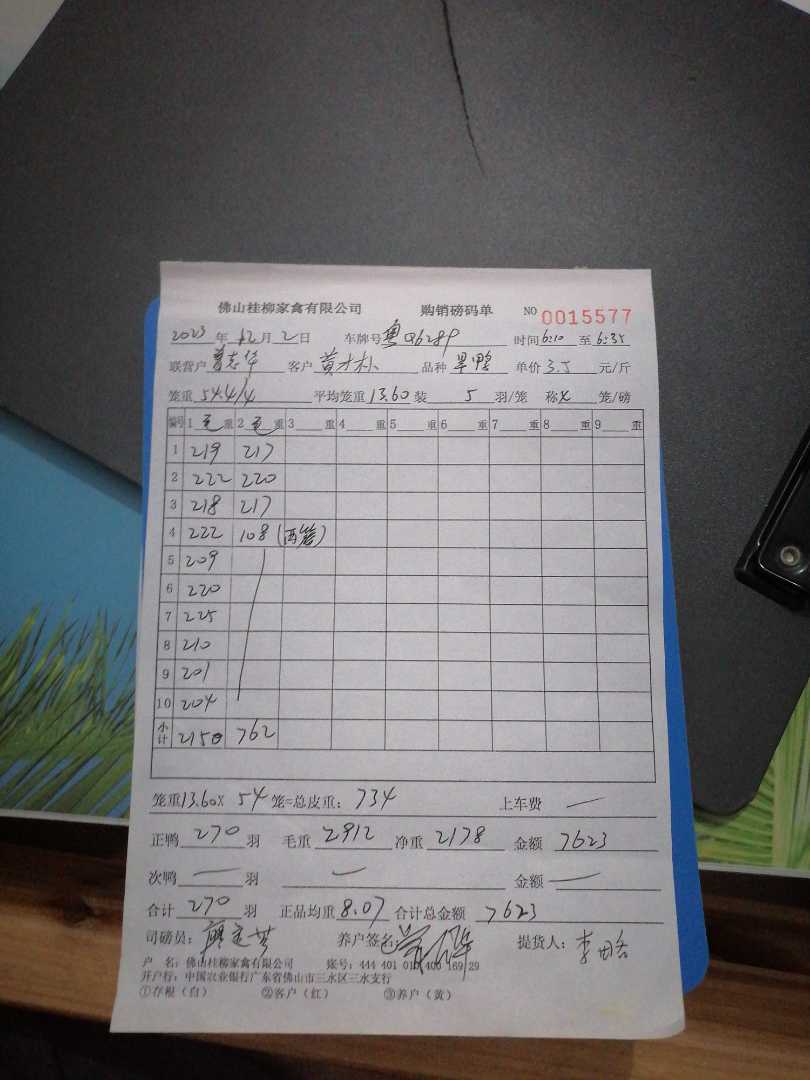 佛山桂柳家禽有限公司 购销磅码单 NO 0015577
2023 年 12 月 2 日 车牌号 粤Q6289 时间 6:10 至 6:35
联营户 曾志华 客户 黄才朴 品种 旱鸭 单价 3.5 元/斤
笼重 54.4/4 平均笼重 13.60 装 5 羽/笼 称 4 笼/磅
编号 1 毛 重 2 毛 重 3 重 4 重 5 重 6 重 7 重 8 重 9 重
1 219 217
2 222 220
3 218 217
4 222 108 (两笼)
5 209
6 220
7 225
8 210
9 201
10 204
小计 2150 762
笼重 13.60 X 54 笼=总皮重: 734 上车费 —
正鸭 270 羽 毛重 2912 净重 2178 金额 7623
次鸭 — 羽 — 金额 —
合计 270 羽 正品均重 8.07 合计总金额 7623
司磅员: 养户签名: 提货人: 李
户 名: 佛山桂柳家禽有限公司 账号: 444 401 010 400 169 29
开户行: 中国农业银行广东省佛山市三水区三水支行
①存根（白） ②客户（红） ③养户（黄）